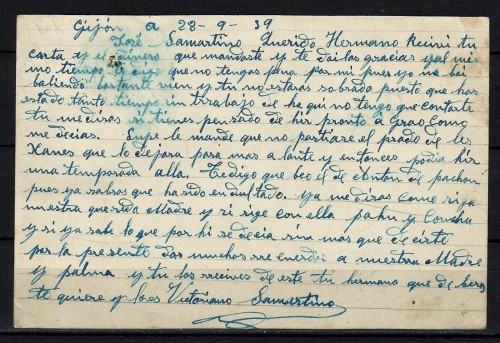 Gijón a 28-9-39
José Samartino Querido Hermano Recivi tu
carta y el dinero que mandaste y te doi las gracias y al mi
mo tiempo te digo que no tengas pena por mi pues yo me boi
baliendo bastante vien y tu no estaras sobrado puesto que has
estado tanto tiempo sin trabajo de ha qui no tengo que contarte
tu me diras si tienes pensado de hir pronto a Grao como
me decias. Supe le mande que no partiare el prado de les
Xanes que lo dejara para mas a lante y entonces podia hir
una temporada alla. Te digo que beo el de de pachon
pues ya sabras que ha sido endultado. ya me diras como siga
nuestra querida Madre y si sige con ella pahu y Concha
y si ya sabe lo que por hi se decia sin mas que decirte
por la presente das muchos rrecuerdos a nuestra Madre
y palma y tu los rrecives de este tu hermano que de beras
te quiere y lo es Victoriano Samartino